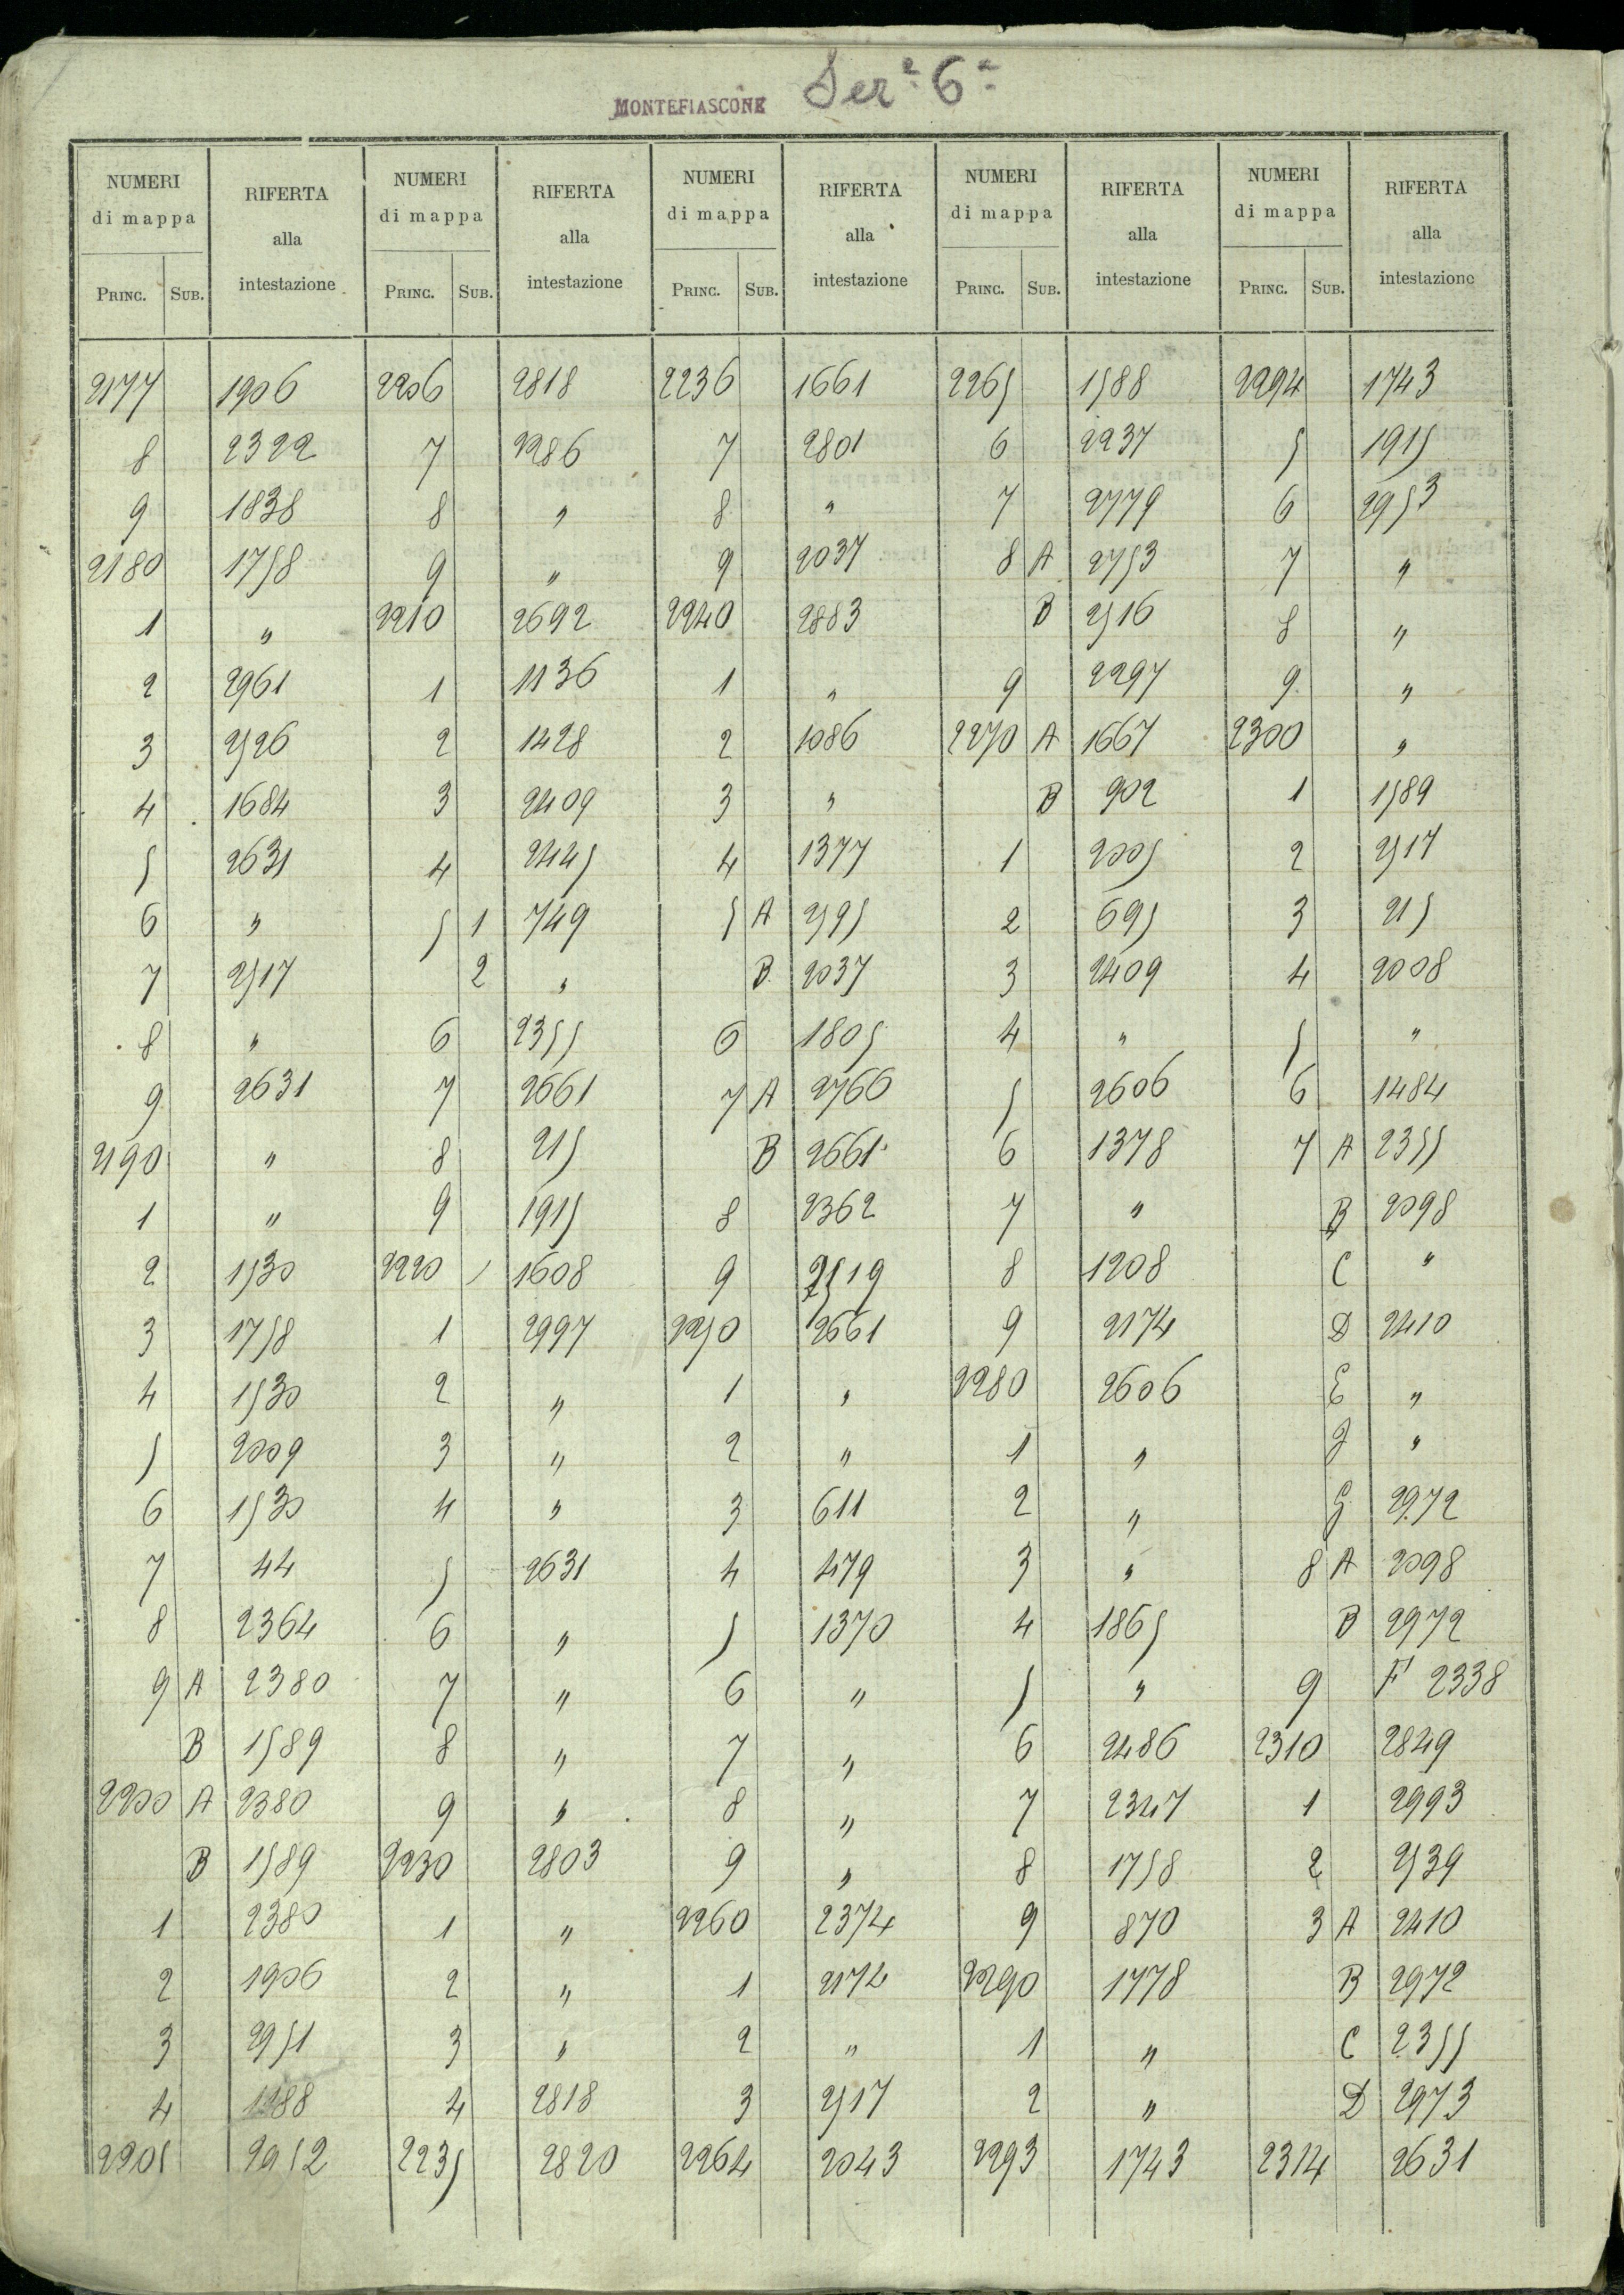 MONTEFIASCONE Ser.e 6a
NUMERI di mappa RIFERTA alla intestazione NUMERI di mappa RIFERTA alla intestazione NUMERI di mappa RIFERTA alla intestazione NUMERI di mappa RIFERTA alla intestazione NUMERI di mappa RIFERTA alla intestazione
PRINC. SUB. PRINC. SUB. PRINC. SUB. PRINC. SUB. PRINC. SUB.
2177 1906 2206 2818 2236 1661 2265 1588 2294 1743
8 2322 7 2286 7 2801 6 2237 5 1915
9 1838 8 " 8 " 7 2779 6 2953
2180 1758 9 " 9 2037 8 A 2753 7 "
1 " 2210 2692 2240 2883 B 2516 8 "
2 2961 1 1136 1 " 9 2297 9 "
3 2526 2 1428 2 1086 2270 A 1667 2300 "
4 1684 3 2409 3 " B 902 1 1589
5 2631 4 2445 4 1377 1 2005 2 2517
6 " 5 1 749 5 A 2595 2 695 3 215
7 2517 2 " B 2037 3 2409 4 2008
8 " 6 2355 6 1805 4 " 5 "
9 2631 7 2661 7 A 2766 5 2606 6 1484
2190 " 8 215 B 2661 6 1378 7 A 2355
1 " 9 1915 8 2362 7 " B 2098
2 1530 2220 1608 9 2519 8 1208 C "
3 1758 1 2997 2250 2661 9 2174 D 2410
4 1530 2 " 1 " 2280 2606 E "
5 2009 3 " 2 " 1 " F "
6 1530 4 " 3 611 2 " G 2972
7 44 5 2631 4 479 3 " 8 A 2098
8 2364 6 " 5 1370 4 1865 B 2972
9 A 2380 7 " 6 " 5 " 9 F 2338
B 1589 8 " 7 " 6 2486 2310 2849
2200 A 2380 9 " 8 " 7 2347 1 2993
B 1589 2230 2803 9 " 8 1758 2 2539
1 2380 1 " 2260 2374 9 870 3 A 2410
2 1906 2 " 1 2174 2290 1778 B 2972
3 2951 3 " 2 " 1 " C 2355
4 4 2818 3 2517 2 " D 2973
2205 2952 2235 2820 2264 2043 2293 1743 2314 2631